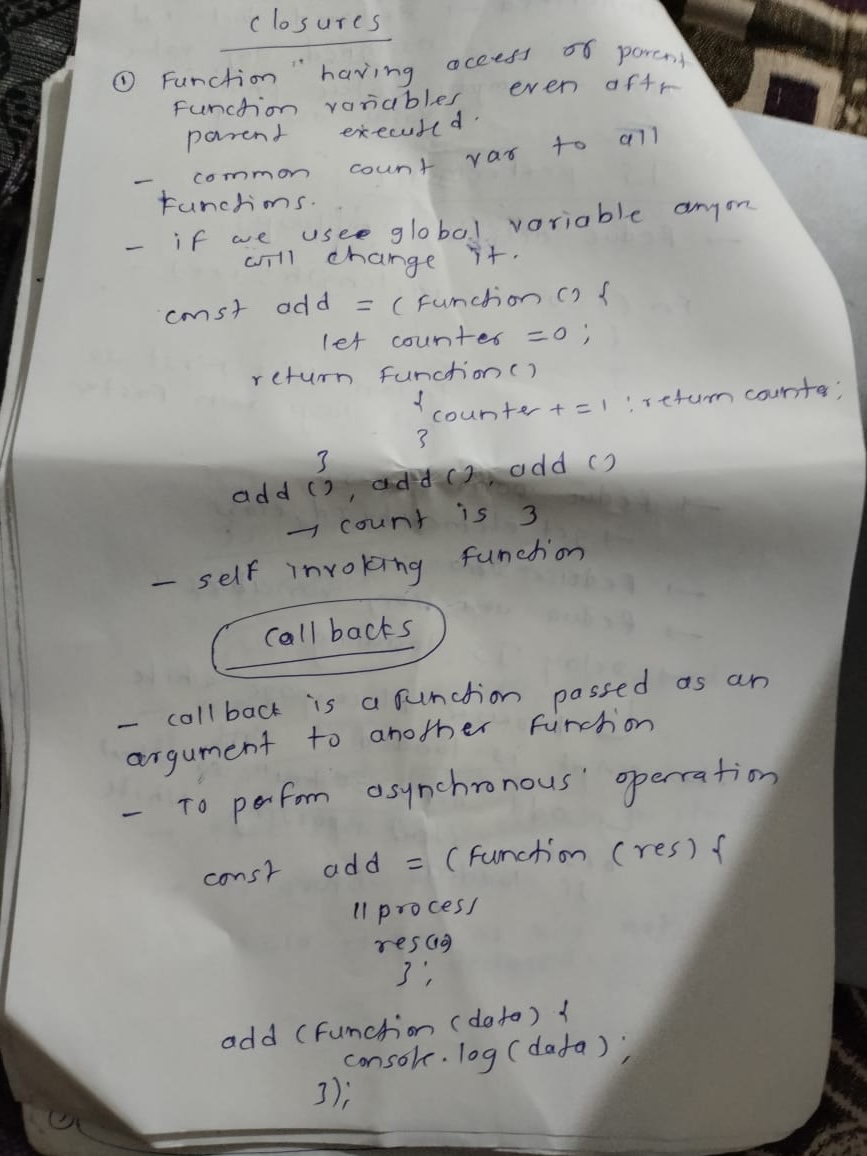 closures
① Function having access of parent
Function variables even aftr
parent executed.
- common count var to all
Functions.
- if we usee global variable anyon
will change it.
const add = ( function () {
let counter = 0 ;
return function ()
{ counter + = 1 ; return counter ;
}
}
add (), add (), add ()
→ count is 3
- self invoking function
call backs
- call back is a function passed as an
argument to another function
- To perfom asynchronous operration
const add = ( function ( res ) {
// process
} ;
add ( function ( data ) {
console.log ( data ) ;
});